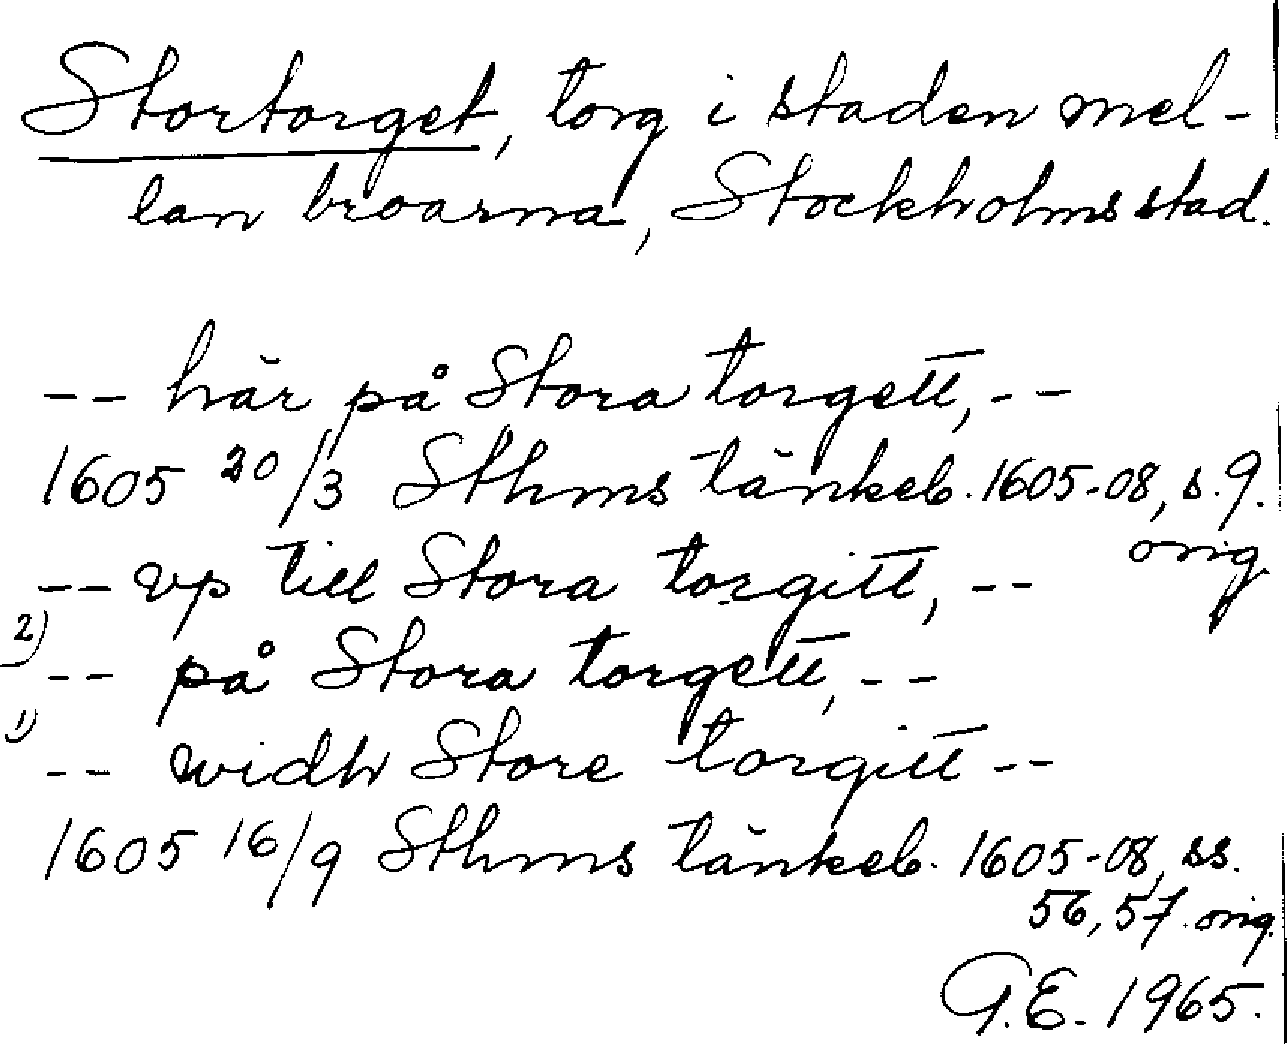 Stortorget, torg i staden mel-
lan broarna, Stockholms stad.
-- här på Stora torgett, --
1605 20/3 Sthms tänkeb. 1605-08, s. 9.
orig
-- vp till Stora torgitt, --
2)
-- på Stora torgett, --
1)
-- widh Store torgitt --
1605 16/9 Sthms tänkeb. 1605-08, ss.
56, 57. orig.
G.E. 1965.